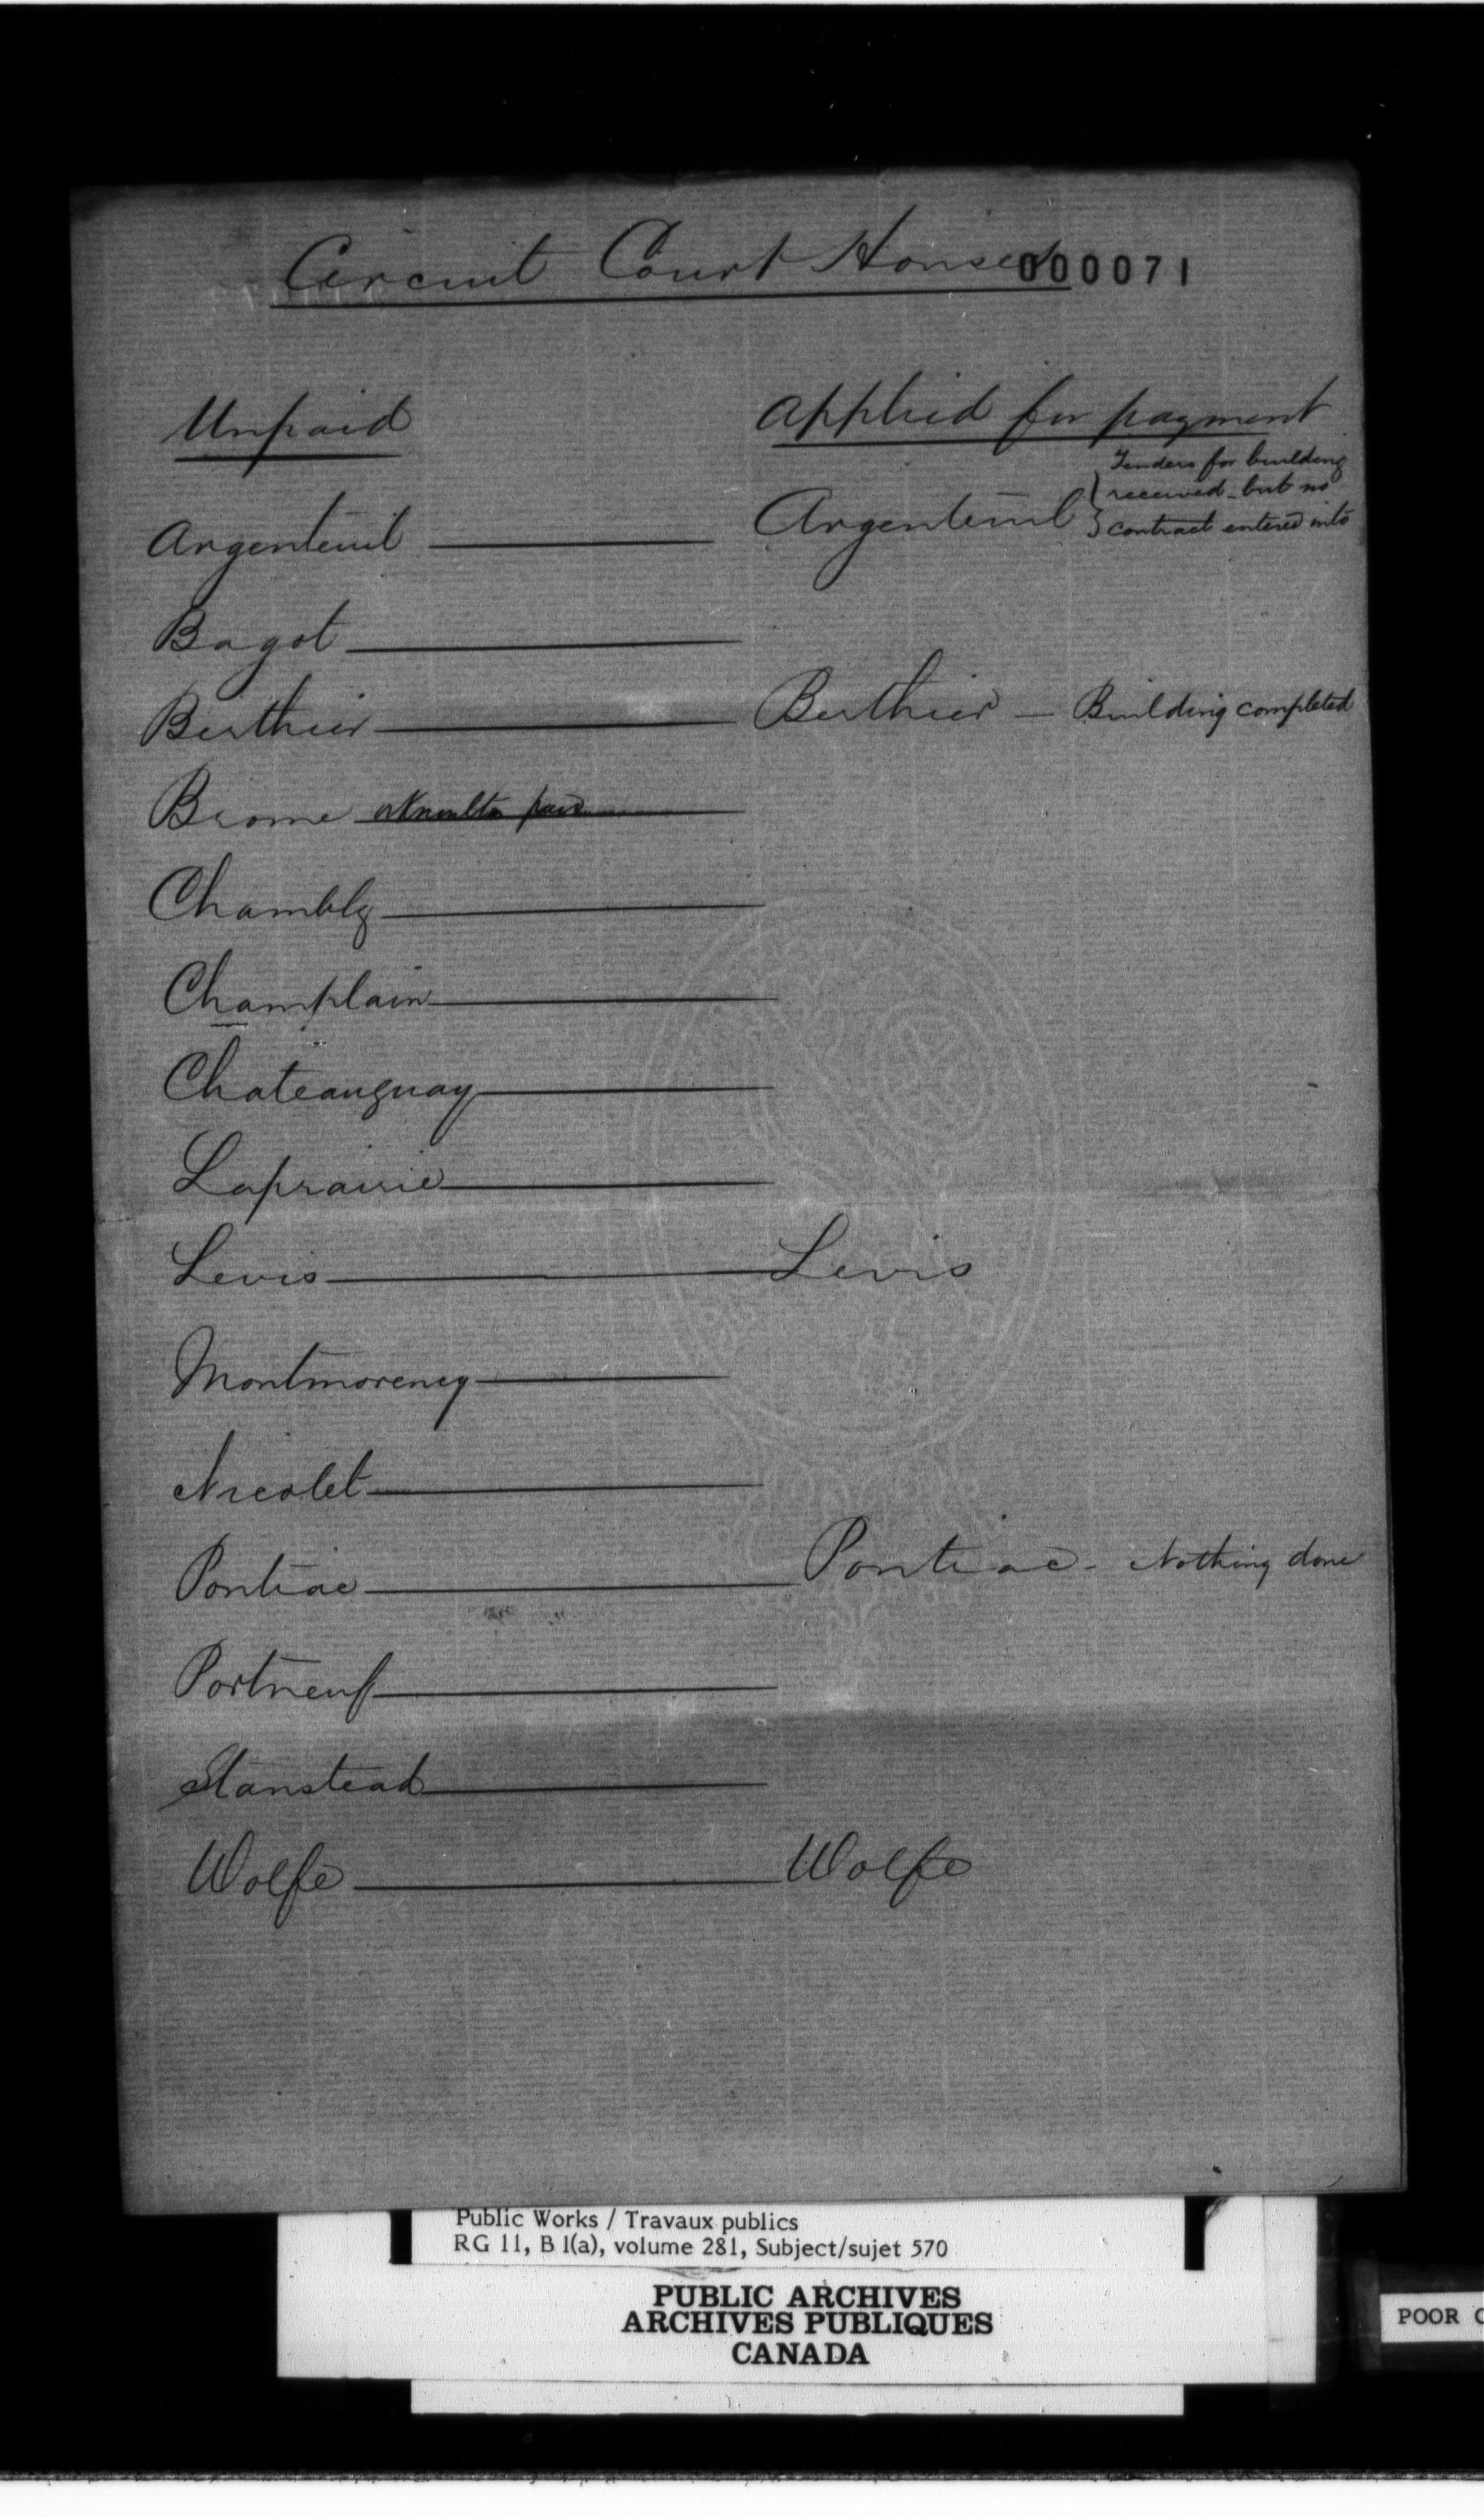 Circuit Court Houses 000071
Unpaid Applied for payment
Tenders for building
received - but no
contract entered into
Argenteuil Argenteuil
Bagot
Berthier Berthier - Building completed
Brome Knowlton paid
Chambly
Champlain
Chateauguay
Laprairie
Levis Levis
Montmorency
Nicolet
Pontiac Pontiac - Nothing done
Portneuf
Stanstead
Wolfe Wolfe
Public Works / Travaux publics
RG 11, B 1(a), volume 281, Subject/sujet 570
PUBLIC ARCHIVES
ARCHIVES PUBLIQUES
CANADA
POOR